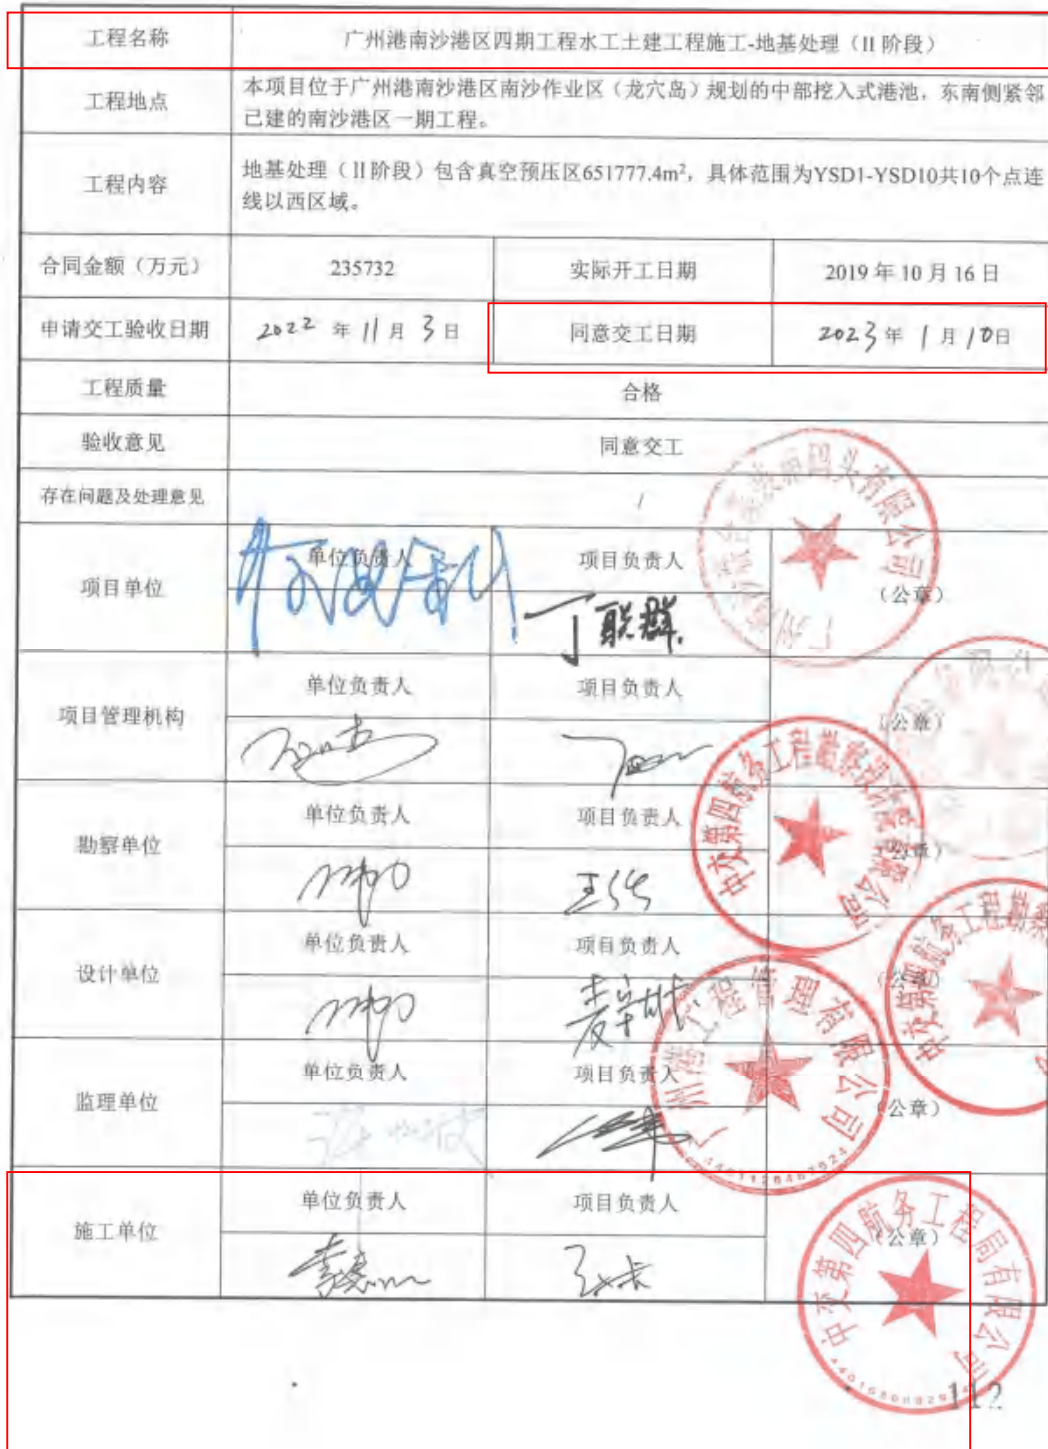 工程名称 广州港南沙港区四期工程水工土建工程施工-地基处理（II 阶段）
工程地点 本项目位于广州港南沙港区南沙作业区（龙穴岛）规划的中部挖入式港池，东南侧紧邻
已建的南沙港区一期工程。
工程内容 地基处理（II阶段）包含真空预压区651777.4m²，具体范围为YSD1-YSD10共10个点连
线以西区域。
合同金额（万元） 235732 实际开工日期 2019 年 10 月 16 日
申请交工验收日期 2022 年 11 月 3 日 同意交工日期 2023 年 1 月 10 日
工程质量 合格
验收意见 同意交工
存在问题及处理意见 /
项目单位 单位负责人 项目负责人 （公章）
丁联群
项目管理机构 单位负责人 项目负责人 （公章）
勘察单位 单位负责人 项目负责人 （公章）
设计单位 单位负责人 项目负责人 （公章）
监理单位 单位负责人 项目负责人 （公章）
广州港工程管理有限公司
施工单位 单位负责人 项目负责人 （公章）
中交第四航务工程局有限公司
112